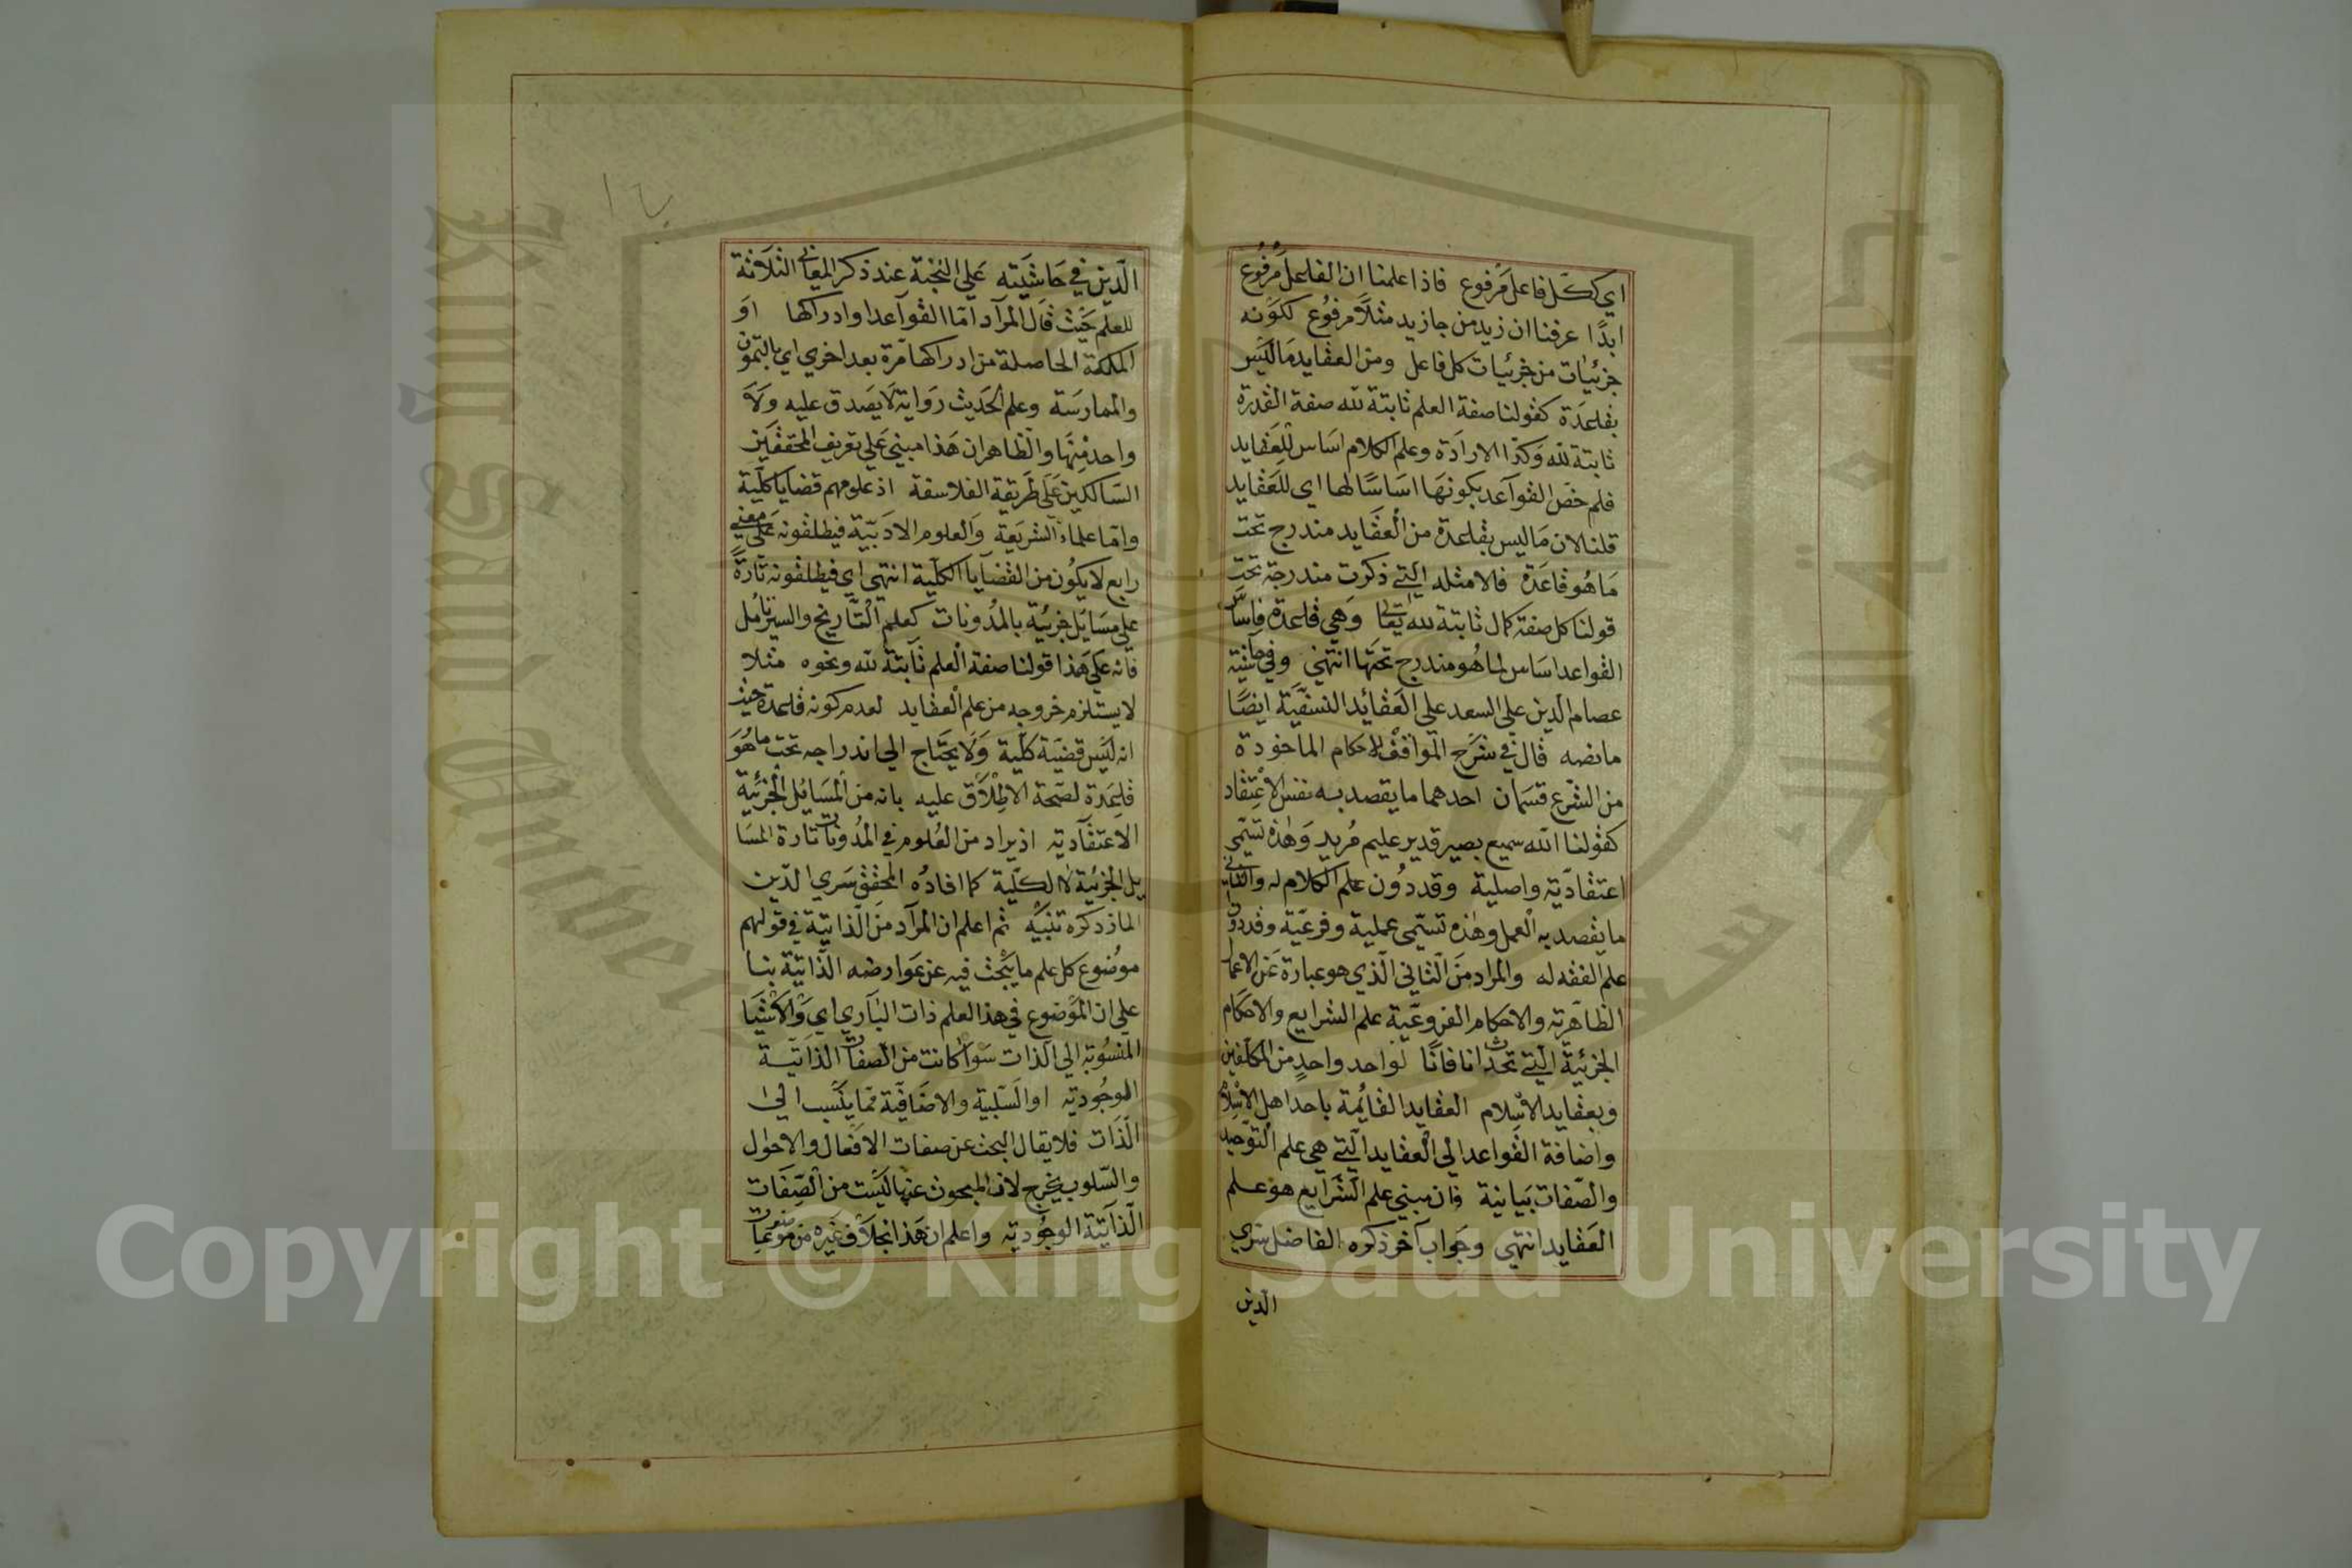 اي ككل فاعل مرفوع فاذا علمنا ان الفاعل مرفوع
ابدًا عرفنا ان زيد من جا زيد مثلاً مرفوع لكونه
جزئيات من جزئيات كل فاعل ومن العقايد ما ليس
بقاعدة كقولنا صفة العلم ثابتة لله صفة القدرة
ثابتة لله وكذا الارادة وعلم الكلام اساس للعقايد
فلم خص القواعد بكونها اساسًا لها اي للعقايد
قلنا لان ما ليس بقاعدة من العقايد مندرج تحت
ما هو قاعدة فالامثله التي ذكرت مندرجة تحت
قولنا كل صفة كمال ثابتة لله تعالى وهي قاعدة فاساس
القواعد اساس لما هو مندرج تحتها انتهي وفي حاشية
عصام الدين علي السعد علي العقائد النسفية ايضًا
ما نصه قال في شرح المواقف الاحكام الماخودة
من الشرع قسمان احدهما ما يقصد به نفس الاعتقاد
كقولنا الله سميع بصير قدير عليم مريد وهذه تسمي
اعتقادية واصلية وقد دون علم الكلام له والثاني
ما يقصد به العمل وهذه تسمي عملية وفرعية وقد دون
علم الفقه له والمراد من الثاني الذي هو عبارة عن الاعمال
الظاهرية والاحكام الفروعية علم الشرايع والاحكام
الجزئية التي تحدث انا فانًا لواحد واحد من المكلفين
وبعقايد الاسلام العقايد القائمة باحد اهل الاسلام
واضافة القواعد الي العقايد التي هي علم التوحيد
والصفات بيانية فان مبني علم الشرايع هو علم
العقايد انتهي وجواب آخر ذكره الفاضل سري
الدين
١٢
الدين في حاشيته علي النخبة عند ذكر المعاني الثلاثة
للعلم حيث قال المراد اما القواعد او ادراكها او
الملكة الحاصلة من ادراكها مرة بعد اخري اي بالتمون
والممارسة وعلم الحديث رواية لا يصدق عليه ولا
واحد منها والظاهر ان هذا مبني علي تعريف المحققين
السالكين علي طريقة الفلاسفة اذ علومهم قضايا كلية
واما علماء الشريعة والعلوم الادبية فيطلقونه علي معني
رابع لا يكون من القضايا الكلية انتهي اي فيطلقونه تارة
علي مسايل جزئية بالمدونات كعلم التاريخ والسير تامل
فانه علي هذا قولنا صفة العلم ثابتة لله ونحوه مثلا
لا يستلزم خروجه من علم العقايد لعدم كونه قاعدة حيث
انه ليس قضية كلية ولا يحتاج الي اندراجه تحت ما هو
قاعدة لصحة الاطلاق عليه بانه من المسايل الجزئية
الاعتقادية اذ يراد من العلوم في المدونات تارة المسا
يل الجزئية لا الكلية كما افاده المحقق سري الدين
المار ذكره تنبيه ثم اعلم ان المراد من الذاتية في قولهم
موضوع كل علم ما يبحث فيه عن عوارضه الذاتية بنا
علي ان الموضوع في هذا العلم ذات الباري اي والاشيا
المنسوبة الي الذات سوآ كانت من الصفات الذاتية
الوجودية او السلبية والاضافية مما ينسب الي
الذات فلا يقال البحث عن صفات الافعال والاحوال
والسلوب يخرج لان المبحوث عنها ليست من الصفات
الذاتية الوجودية واعلم ان هذا بخلاف غيره من موضوعات
King Saud University
Copyright © King Saud University